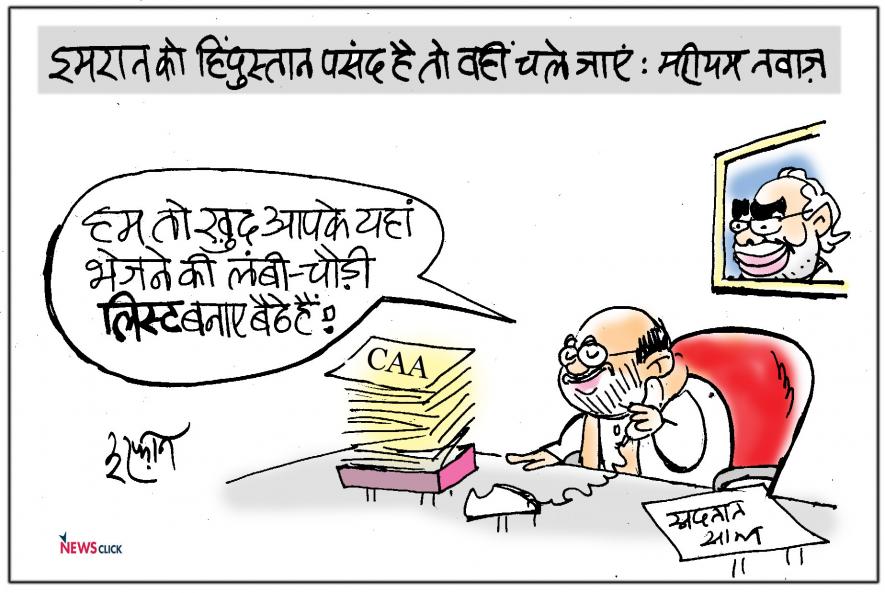 इमरान को हिंदुस्तान पसंद है तो वहीं चले जाएं : मरीयम नवाज़
हम तो ख़ुद आपके यहां
भेजने की लंबी-चौड़ी
लिस्ट बनाए बैठे हैं!
CAA
इरफ़ान
NEWSCLICK